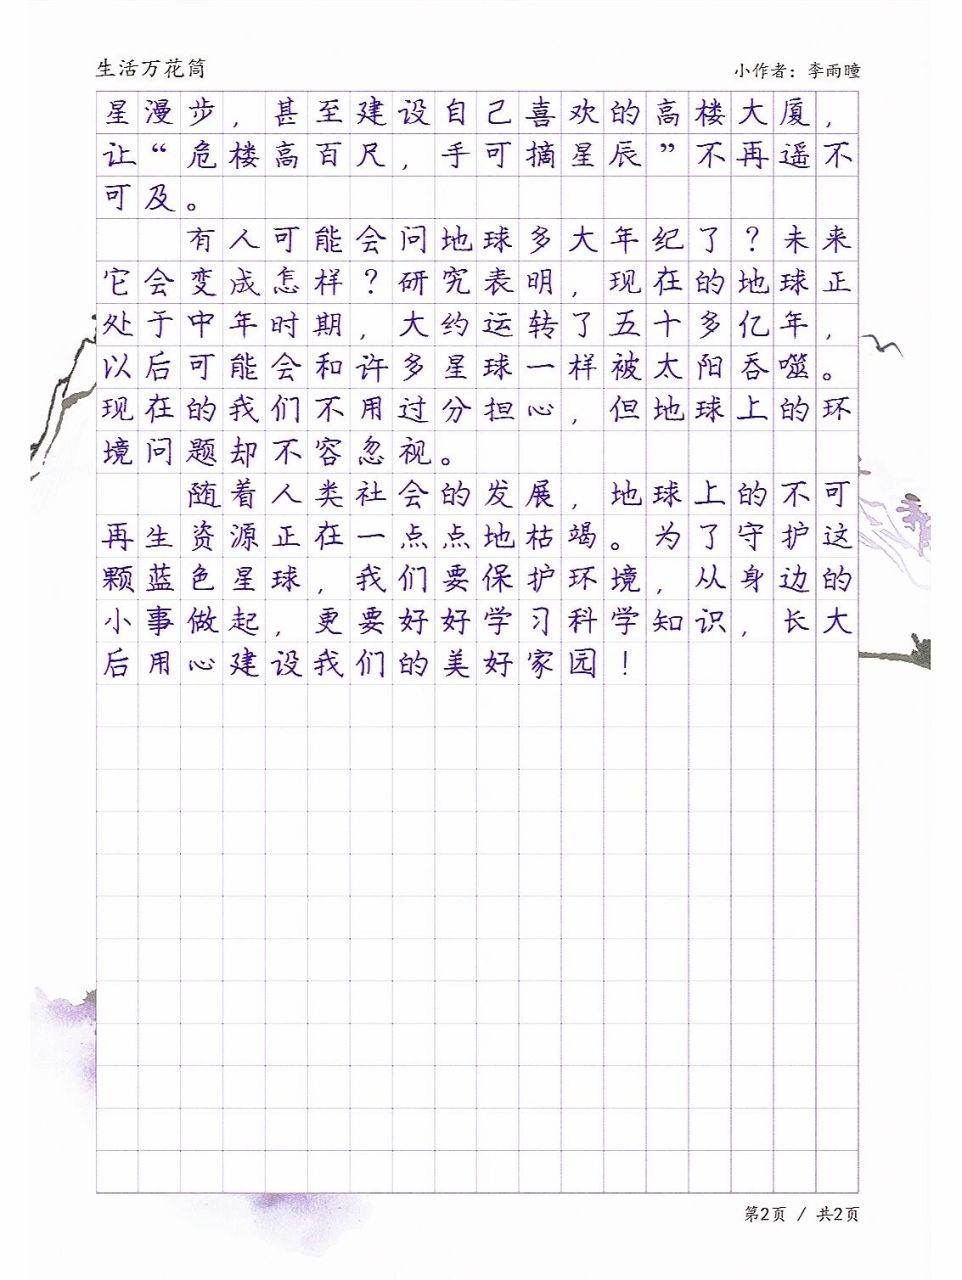 生活万花筒
小作者：李雨曈
星漫步，甚至建设自己喜欢的高楼大厦，
让“危楼高百尺，手可摘星辰”不再遥不
可及。
有人可能会问地球多大年纪了？未来
它会变成怎样？研究表明，现在的地球正
处于中年时期，大约运转了五十多亿年，
以后可能会和许多星球一样被太阳吞噬。
现在的我们不用过分担心，但地球上的环
境问题却不容忽视。
随着人类社会的发展，地球上的不可
再生资源正在一点点地枯竭。为了守护这
颗蓝色星球，我们要保护环境，从身边的
小事做起，更要好好学习科学知识，长大
后用心建设我们的美好家园！
第2页 / 共2页